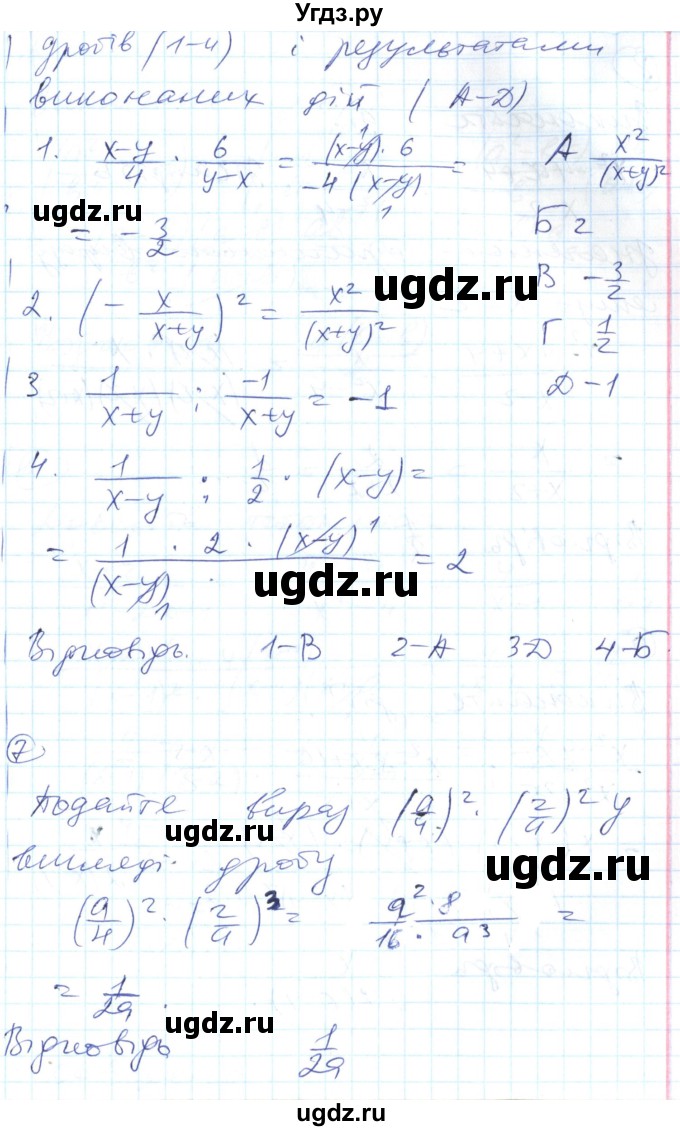 Угдз.ру
дробів (1–4) і результатами
виконаних дій (А–Д)
1. (x–y)/4 · 6/(y–x) = ((x–y)¹ · 6)/(–4 (x–y)₁) = А x²/(x+y)²
ugdz.ru
= –3/2 Б 2
ugdz.ru
2. (– x/(x+y))² = x²/(x+y)² В –3/2
Г 1/2
3 1/(x+y) : –1/(x+y) = –1 Д –1
4. 1/(x–y) : 1/2 · (x–y) =
= (1 · 2 · (x–y)¹)/((x–y)₁ ·) = 2
ugdz.ru
Відповідь. 1–В 2–А 3–Д 4–Б
7
ugdz.ru
Подайте вираз (a/4)² · (2/a)² у
вигляді дробу
ugdz.ru
ugdz.ru
(a/4)² · (2/a)³ = (a² · 8)/(16 · a³) =
= 1/2a .
ugdz.ru
Відповідь 1/2a
ugdz.ru